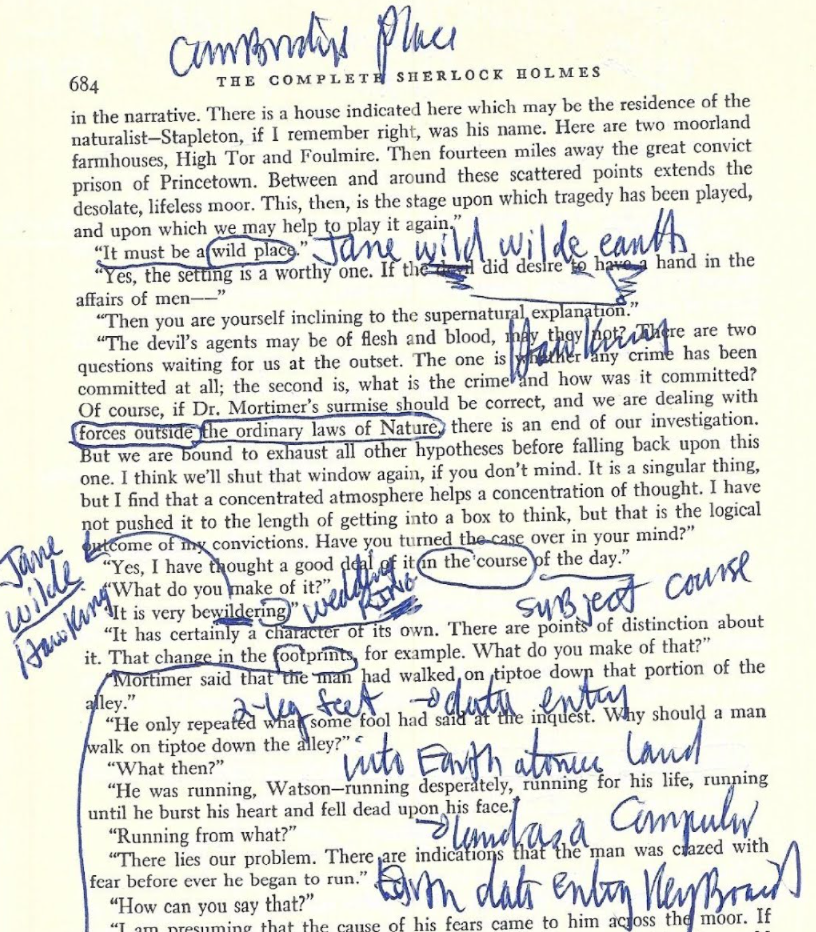 Place
684
THE COMPLETE SHERLOCK HOLMES
in the narrative. There is a house indicated here which may be the residence of the
naturalist—Stapleton, if I remember right, was his name. Here are two moorland
farmhouses, High Tor and Foulmire. Then fourteen miles away the great convict
prison of Princetown. Between and around these scattered points extends the
desolate, lifeless moor. This, then, is the stage upon which tragedy has been played,
and upon which we may help to play it again."
"It must be a wild place." Jane wild wilde earth
"Yes, the setting is a worthy one. If the devil did desire to have a hand in the
affairs of men——"
"Then you are yourself inclining to the supernatural explanation."
Hawking
"The devil's agents may be of flesh and blood, may they not? There are two
questions waiting for us at the outset. The one is whether any crime has been
committed at all; the second is, what is the crime and how was it committed?
Of course, if Dr. Mortimer's surmise should be correct, and we are dealing with
forces outside the ordinary laws of Nature, there is an end of our investigation.
But we are bound to exhaust all other hypotheses before falling back upon this
one. I think we'll shut that window again, if you don't mind. It is a singular thing,
but I find that a concentrated atmosphere helps a concentration of thought. I have
not pushed it to the length of getting into a box to think, but that is the logical
outcome of my convictions. Have you turned the case over in your mind?"
Jane
wilde
Hawking
"Yes, I have thought a good deal of it in the course of the day."
"What do you make of it?" wedding
RING
subject course
"It is very bewildering."
"It has certainly a character of its own. There are points of distinction about
it. That change in the footprints, for example. What do you make of that?"
"Mortimer said that the man had walked on tiptoe down that portion of the
alley."
2-leg feet → data entry
"He only repeated what some fool had said at the inquest. Why should a man
walk on tiptoe down the alley?"
into Earth atomic land
"What then?"
"He was running, Watson—running desperately, running for his life, running
until he burst his heart and fell dead upon his face."
→ land as a Computer
"Running from what?"
"There lies our problem. There are indications that the man was crazed with
fear before ever he began to run."
Earth data Entry KeyBoard
"How can you say that?"
"I am presuming that the cause of his fears came to him across the moor. If